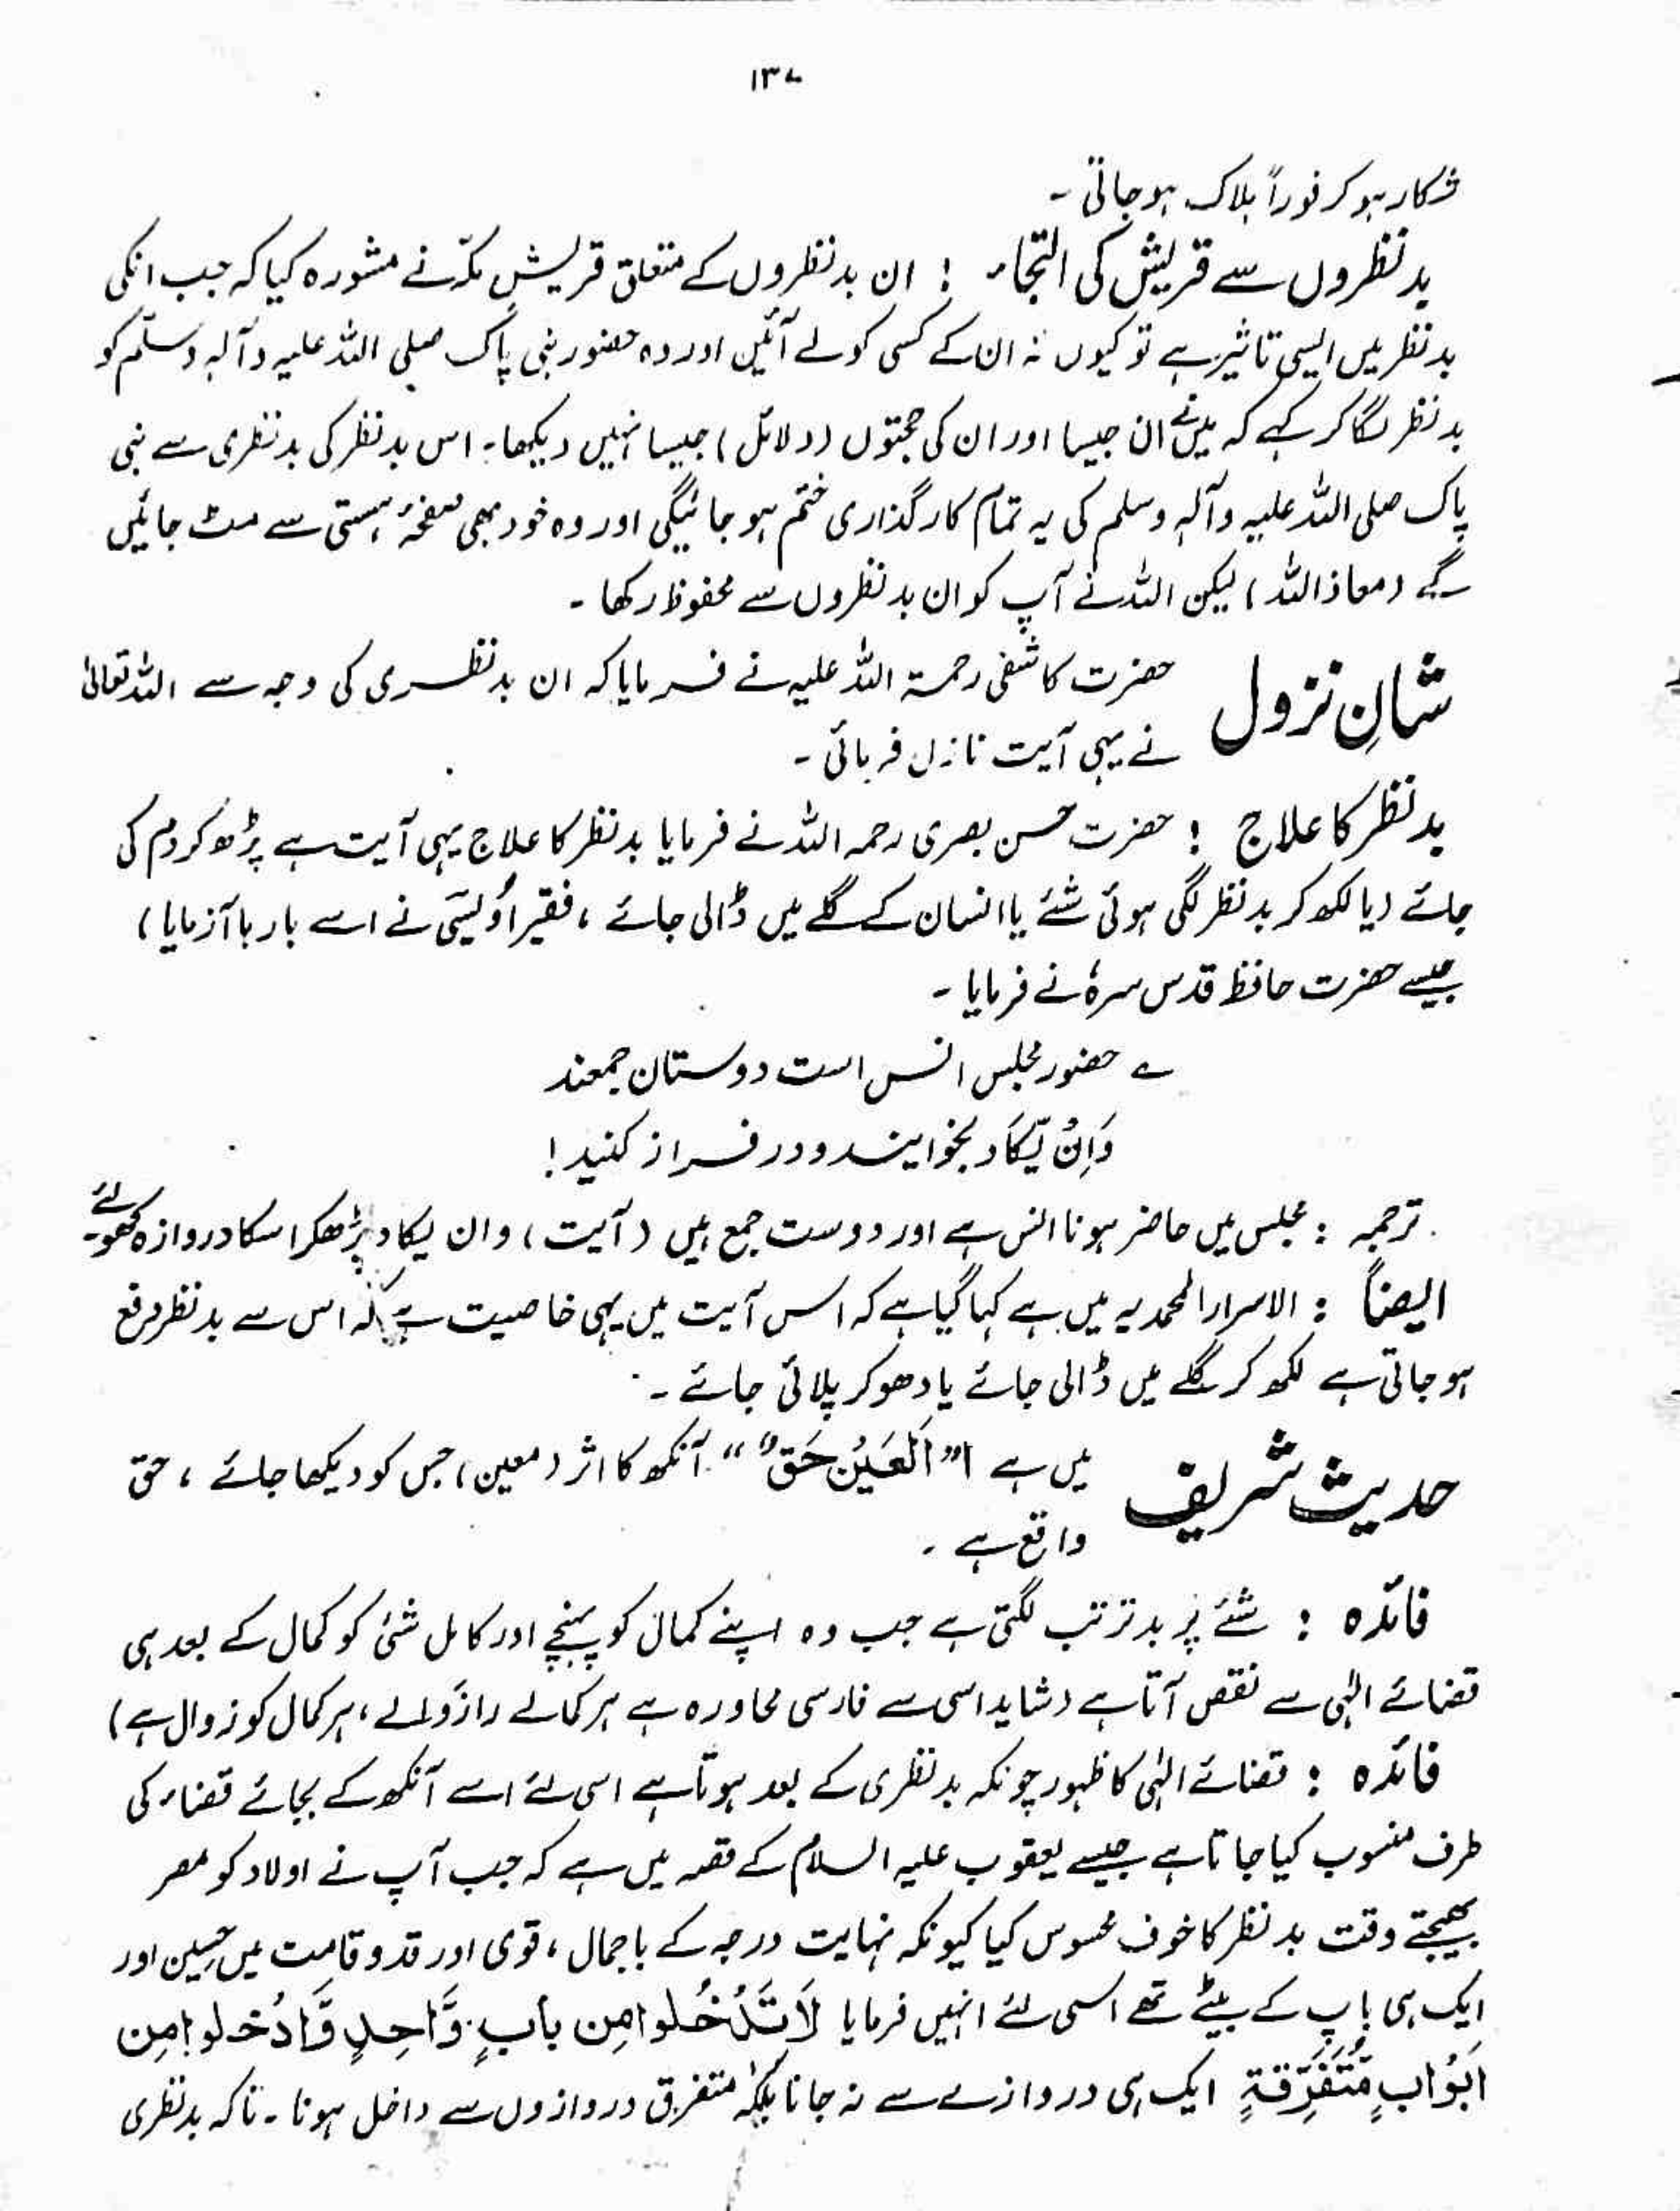 ۱۳۷
شکار ہو کر فوراً ہلاک ہو جاتی ۔
بدنظروں سے قریش کی التجاء : ان بدنظروں کے متعلق قریشِ مکہّ نے مشورہ کیا کہ جب انکی
بدنظر میں ایسی تاثیر ہے تو کیوں نہ ان کے کسی کو لے آئیں اور وہ حضور نبی پاک صلی اللہ علیہ وآلہ وسلّم کو
بدنظر لگا کر کہے کہ میں نے ان جیسا اور ان کی حجتوں (دلائل) جیسا نہیں دیکھا۔ اس بدنظر کی بدنظری سے نبی
پاک صلی اللہ علیہ وآلہٖ وسلم کی یہ تمام کارگذاری ختم ہو جائیگی اور وہ خود بھی صفحۂ ہستی سے مٹ جائیں
گے (معاذ اللہ) لیکن اللہ نے آپ کو ان بدنظروں سے محفوظ رکھا ۔
شانِ نزول حضرت کاشفی رحمۃ اللہ علیہ نے فرمایا کہ ان بدنظری کی وجہ سے اللہ تعالیٰ
نے یہی آیت نازل فرمائی ۔
بدنظر کا علاج : حضرت حسن بصری رحمہ اللہ نے فرمایا بدنظر کا علاج یہی آیت ہے پڑھ کر دم کی
جائے (یا لکھ کر بدنظر لگی ہوئی شئے یا انسان کے گلے میں ڈالی جائے ، فقیر اُویسی نے اسے بارہا آزمایا)
جیسے حضرت حافظ قدس سرہٗ نے فرمایا ۔
ے حضور مجلس انس است دوستان جمعند
وَاِنْ یَّکَاد بخوانید و در فراز کنید !
ترجمہ : مجلس میں حاضر ہونا انس ہے اور دوست جمع ہیں (آیت) وان یکاد پڑھکر اسکا دروازہ کھولئے
ایضاً : الاسرار المحمدیہ میں ہے کہا گیا ہے کہ اس آیت میں یہی خاصیت ہے کہ اس سے بدنظر دفع
ہو جاتی ہے لکھ کر گلے میں ڈالی جائے یا دھو کر پلائی جائے ۔
حدیث شریف میں ہے ا"اَلْعَیْنُ حَقٌّ" آنکھ کا اثر (معین) جس کو دیکھا جائے ، حق
واقع ہے ۔
فائدہ : شئے پر بد تر تب لگتی ہے جب وہ اپنے کمال کو پہنچے اور کامل شئی کو کمال کے بعد ہی
قضائے الٰہی سے نقص آتا ہے (شاید اسی سے فارسی محاورہ ہے ہر کمالے را زوالے ، ہر کمال کو زوال ہے)
فائدہ : قضائے الٰہی کا ظہور چونکہ بدنظری کے بعد ہوتا ہے اسی لئے اسے آنکھ کے بجائے قضاء کی
طرف منسوب کیا جاتا ہے جیسے یعقوب علیہ السلام کے قصہ میں ہے کہ جب آپ نے اولاد کو مصر
بھیجتے وقت بدنظر کا خوف محسوس کیا کیونکہ نہایت درجہ کے باجمال ، قوی اور قد و قامت میں حسین اور
ایک ہی باپ کے بیٹے تھے اسی لئے انہیں فرمایا لَا تَدْخُلوا مِن بابٍ وَّاحِدٍ وَّادْخلوا مِن
اَبْوَابٍ مُّتَفَرِّقَۃٍ ایک ہی دروازے سے نہ جانا بلکہ متفرق دروازوں سے داخل ہونا ۔ تاکہ بدنظری